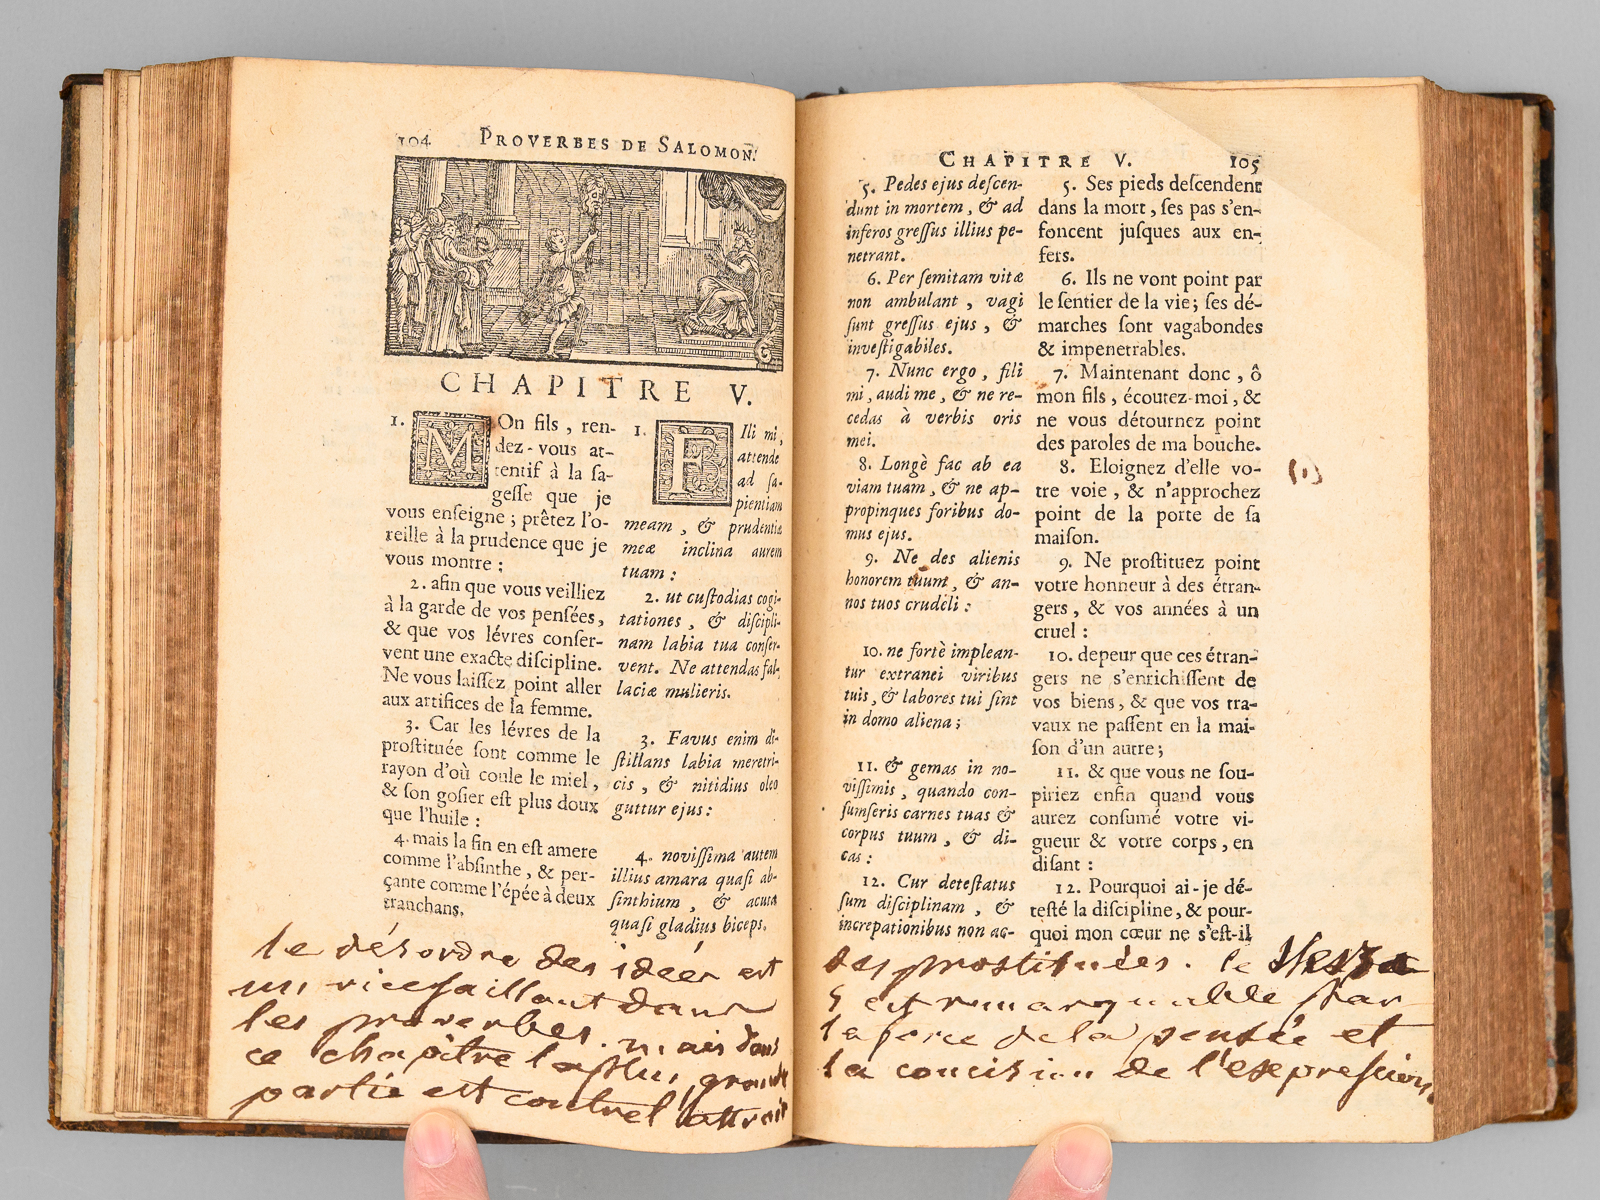 104 PROVERBES DE SALOMON.
CHAPITRE V.
1. MOn fils, ren-
dez-vous at-
tentif à la ſa-
geſſe que je
vous enſeigne ; prêtez l'o-
reille à la prudence que je
vous montre ;
2. afin que vous veilliez
à la garde de vos penſées,
& que vos lévres conſer-
vent une exacte diſcipline.
Ne vous laiſſez point aller
aux artifices de la femme.
3. Car les lévres de la
proſtituée ſont comme le
rayon d'où coule le miel,
& ſon goſier eſt plus doux
que l'huile :
4. mais la fin en eſt amere
comme l'abſinthe, & per-
çante comme l'épée à deux
tranchans.
1. FIli mi,
attende
ad ſa-
pientiam
meam, & prudentiæ
meæ inclina aurem
tuam :
2. ut cuſtodias cogi-
tationes, & diſcipli-
nam labia tua conſer-
vent. Ne attendas fal-
laciæ mulieris.
3. Favus enim di-
ſtillans labia meretri-
cis, & nitidius oleo
guttur ejus :
4. noviſſima autem
illius amara quaſi ab-
ſinthium, & acuta
quaſi gladius biceps.
le désordre des idées est
un vice saillant dans
les proverbes. mais dans
ce chapitre la plus grande
partie est contre l'attrait
CHAPITRE V. 105
5. Pedes ejus deſcen-
dunt in mortem, & ad
inferos greſſus illius pe-
netrant.
6. Per ſemitam vitæ
non ambulant, vagi
ſunt greſſus ejus, &
inveſtigabiles.
7. Nunc ergo, fili
mi, audi me, & ne re-
cedas à verbis oris
mei.
8. Longè fac ab ea
viam tuam, & ne ap-
propinques foribus do-
mus ejus.
9. Ne des alienis
honorem tuum, & an-
nos tuos crudeli :
10. ne fortè implean-
tur extranei viribus
tuis, & labores tui ſint
in domo aliena ;
11. & gemas in no-
viſſimis, quando con-
ſumſeris carnes tuas &
corpus tuum, & di-
cas :
12. Cur deteſtatus
ſum diſciplinam, &
increpationibus non ac-
5. Ses pieds deſcendent
dans la mort, ſes pas s'en-
foncent juſques aux en-
fers.
6. Ils ne vont point par
le ſentier de la vie ; ſes dé-
marches ſont vagabondes
& impenetrables.
7. Maintenant donc, ô
mon fils, écoutez-moi, &
ne vous détournez point
des paroles de ma bouche.
8. Eloignez d'elle vo-
tre voie, & n'approchez
point de la porte de ſa
maiſon.
9. Ne proſtituez point
votre honneur à des étran-
gers, & vos années à un
cruel :
10. depeur que ces étran-
gers ne s'enrichiſſent de
vos biens, & que vos tra-
vaux ne paſſent en la mai-
ſon d'un autre ;
11. & que vous ne ſou-
piriez enfin quand vous
aurez conſumé votre vi-
gueur & votre corps, en
diſant :
12. Pourquoi ai-je dé-
teſté la diſcipline, & pour-
quoi mon cœur ne s'eſt-il
(1)
des prostituées. le
5 est remarquable par
la force de la pensée et
la concision de l'expression.